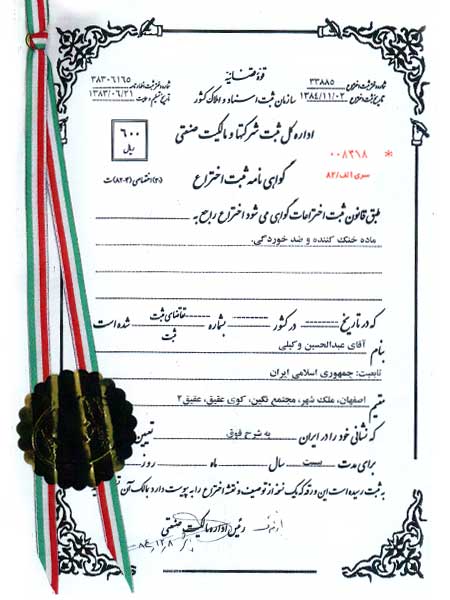 قوهٔ قضائیه
سازمان ثبت اسناد و املاک کشور
شماره ثبت اختراع ۳۳۸۸۵
تاریخ ثبت اختراع ۱۳۸۴/۱۱/۰۲
شماره ثبت اظهارنامه ۳۸۳۰۶۱۶۵
تاریخ تسلیم ۱۳۸۳/۰۶/۲۱
اداره کل ثبت شرکتها و مالکیت صنعتی
۶۰۰
ریال
* ۰۰۸۳۱۸
سری الف/۸۲
گواهی نامه ثبت اختراع
(۲۰) اختصاصی (۴-۸۲) ث
طبق قانون ثبت اختراعات گواهی می شود اختراع راجع به
ماده خنک کننده و ضد خوردگی.
که در تاریخ -------- در کشور -------- بشماره -------- تقاضای ثبت شده است
ثبت
بنام آقای عبدالحسین وکیلی
تابعیت: جمهوری اسلامی ایران
مقیم اصفهان، ملک شهر، مجتمع نگین، کوی عقیق، عقیق۲
که نشانی خود را در ایران به شرح فوق تعیین
برای مدت بیست سال ماه روز
به ثبت رسیده است این ورقه که یک نسخه از توصیف و نقشه اختراع را به پیوست دارد بمالک آن
رئیس اداره مالکیت صنعتی